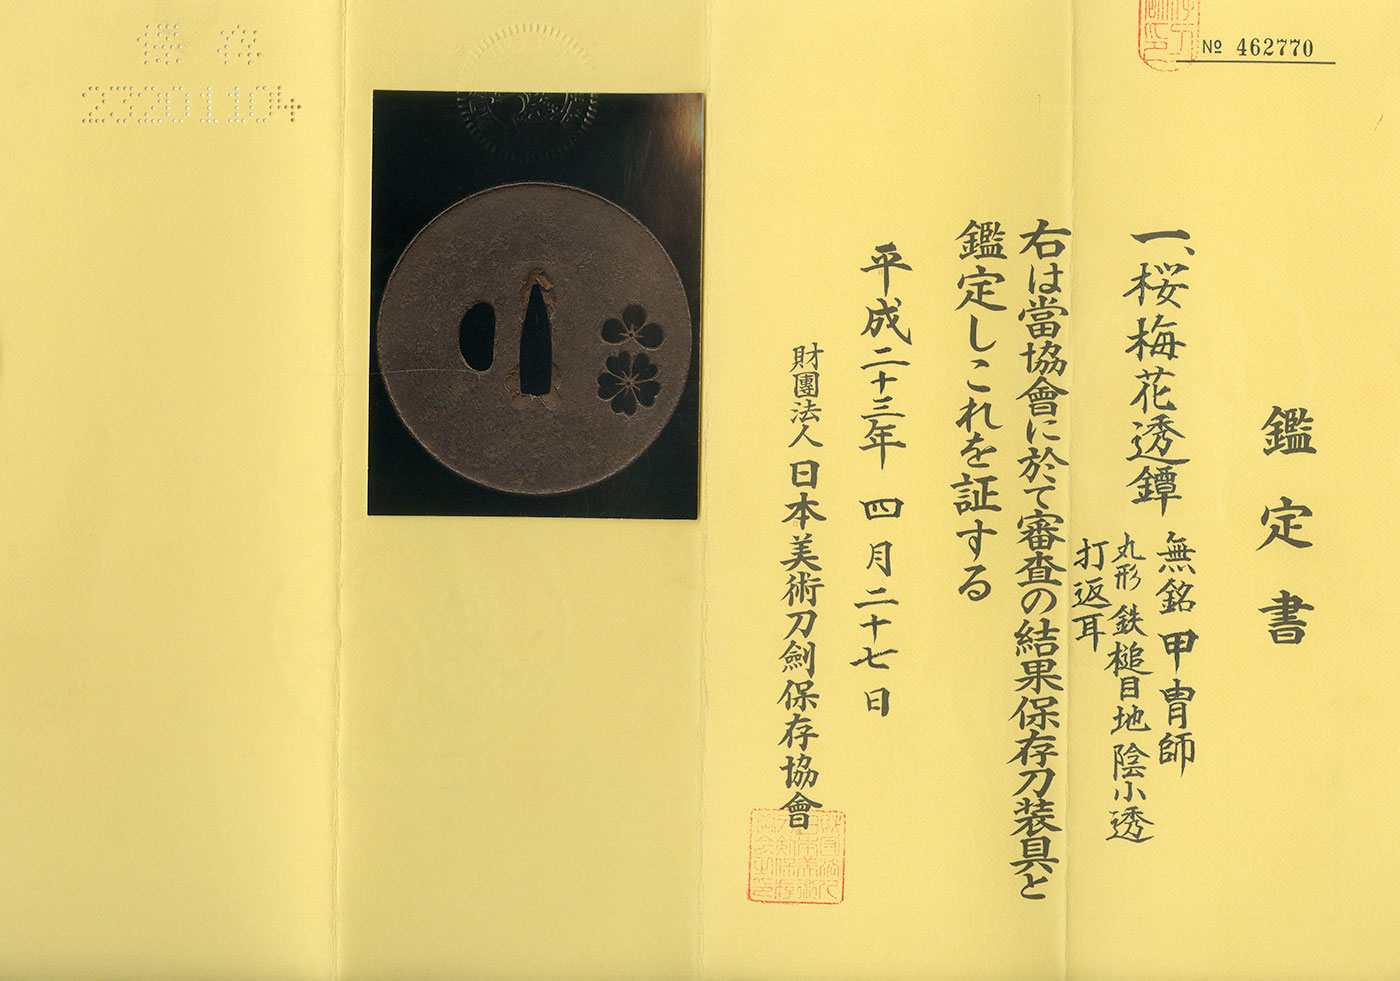 № 462770
鑑定書
一、桜梅花透鐔
無銘 甲冑師
丸形 鉄槌目地 陰小透
打返耳
右は當協會に於て審査の結果保存刀装具と
鑑定しこれを証する
平成二十三年 四月二十七日
財團法人 日本美術刀劍保存協會
保存
23201104